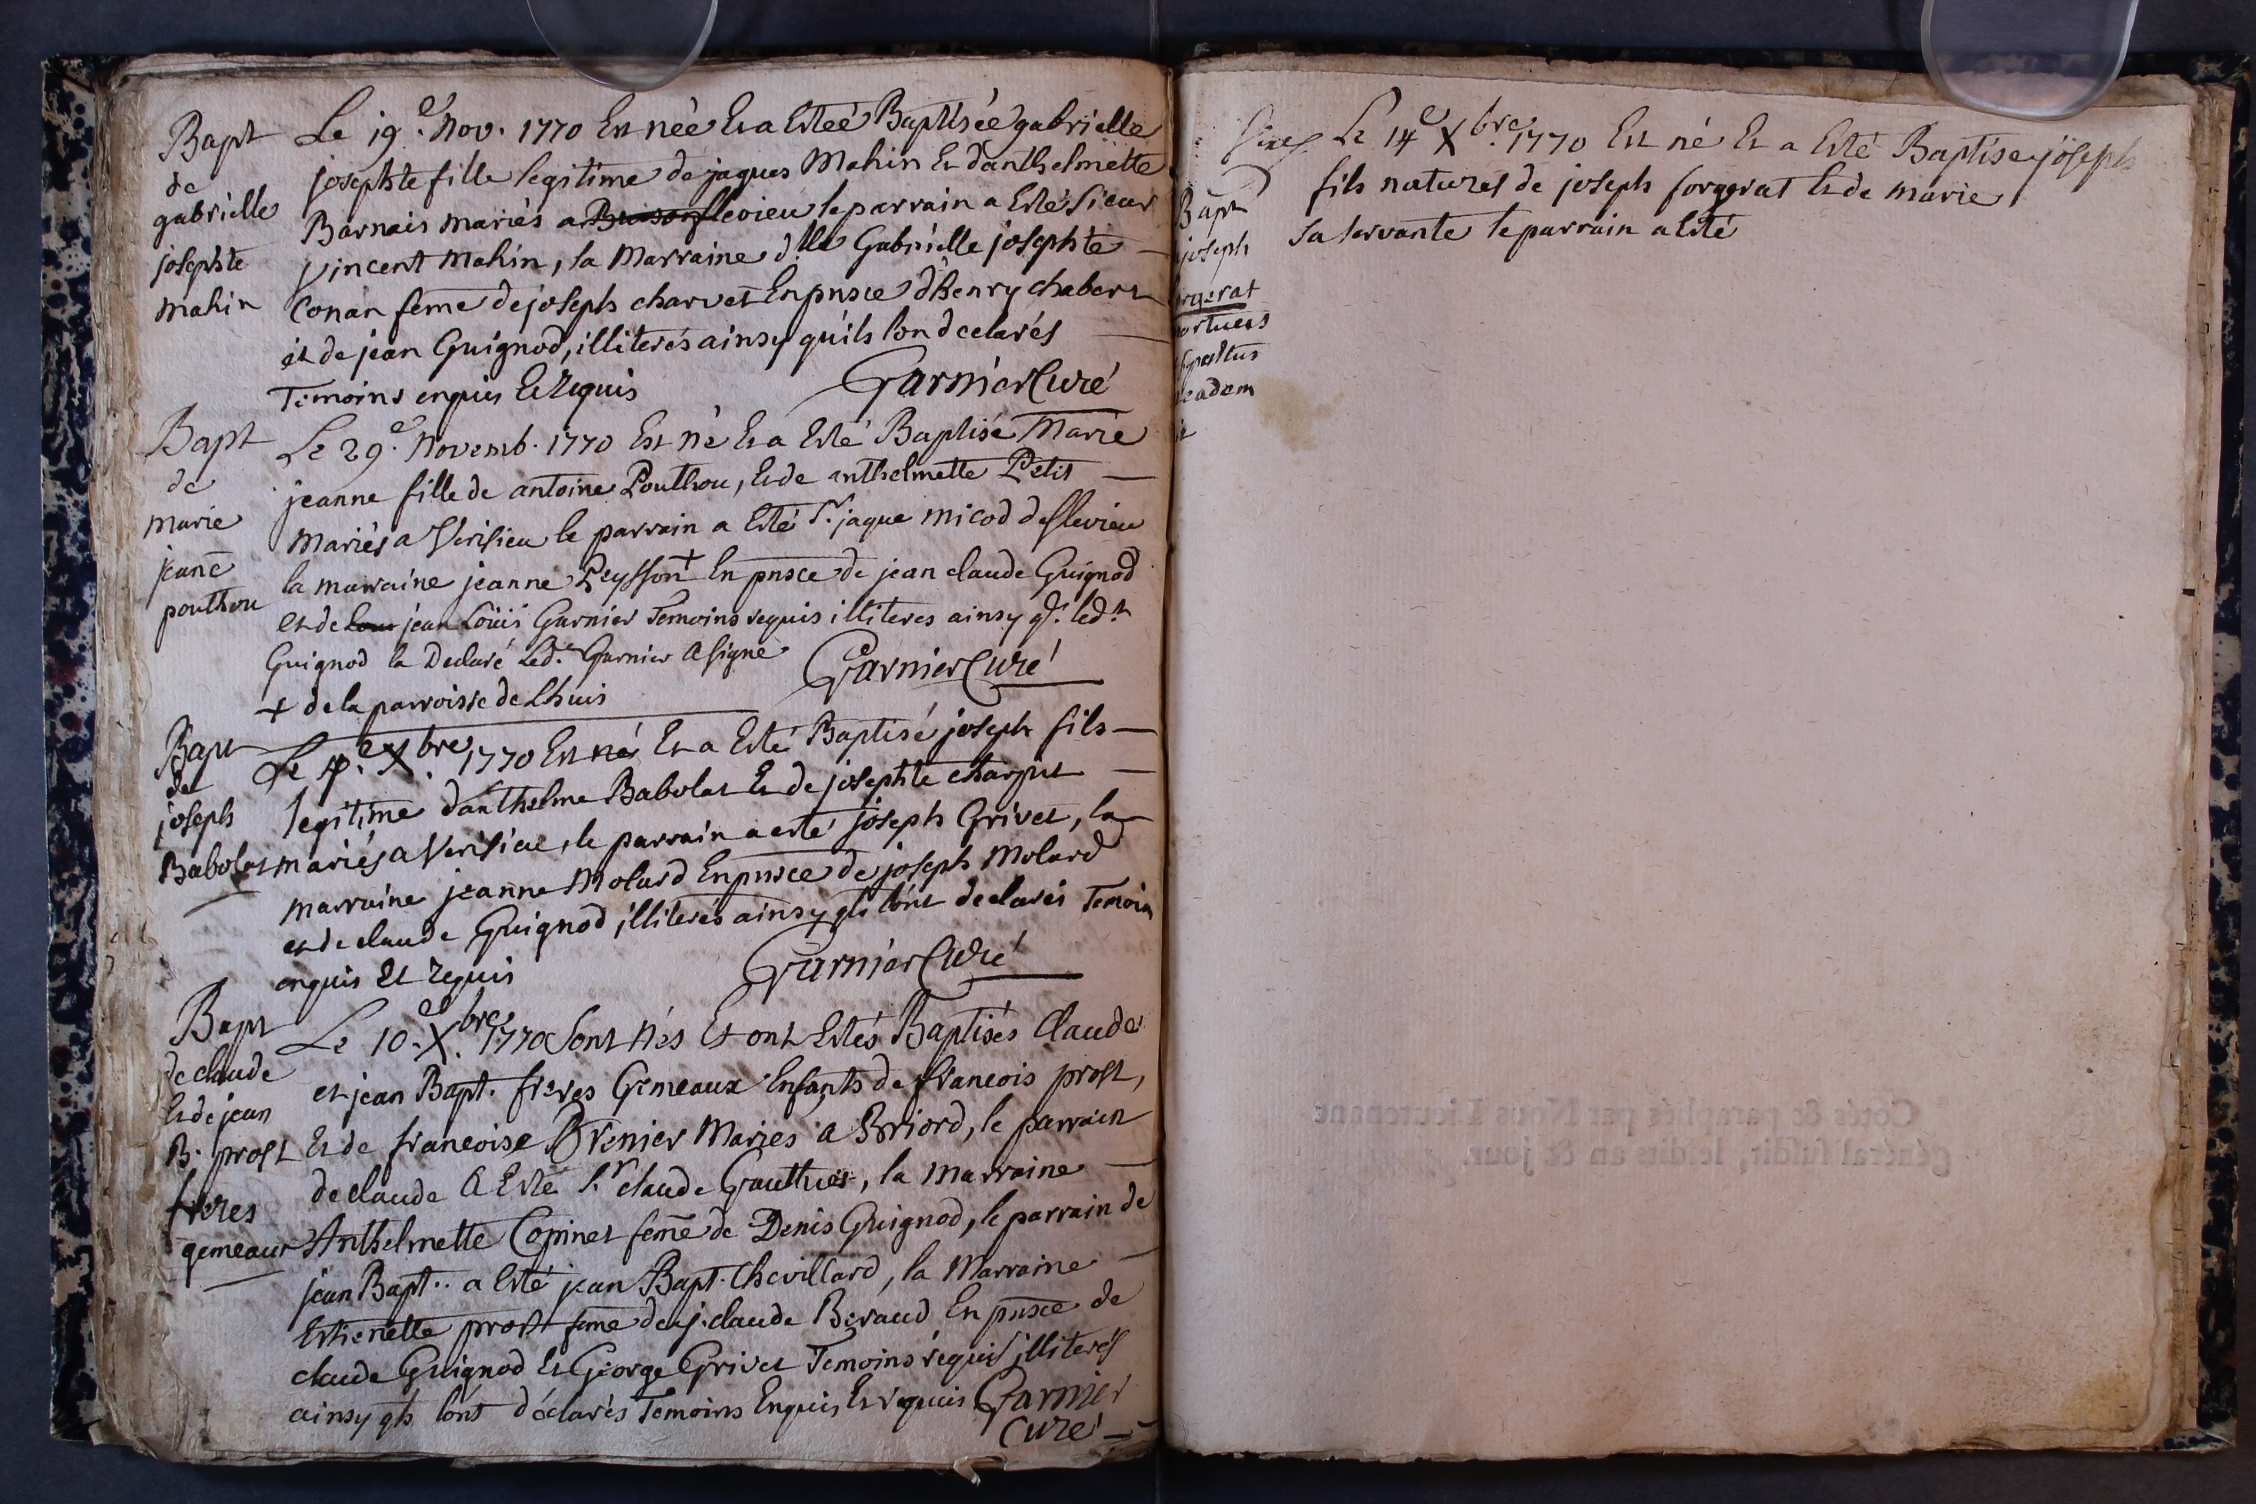 Bapt
de
gabrielle
josephte
mahin
Le 19.e Nov. 1770 Est née Et a Esteé Baptisée gabrielle
josephte fille legitime de jaques Mahin Et danthelmette
Barnais mariés a flevieu le parrain a Esté Sieur
vincent Mahin, la Marraine d.lle Gabrielle josephte
Conan feme de joseph charvet En pnsce dhenry chabert
et de jean Guignod, illiterés ainsy quils lon declarés
Temoins enquis Et Requis Garnier Curé
Bapt
de
marie
jeane
pouthou
Le 29.e Novemb. 1770 Est né Et a Esté Baptisé Marie
jeanne fille de antoine Pouthou, Et de anthelmette Petit
Mariés a Verisieu le parrain a Esté S.r jaque micod de flevieu
la marraine jeanne Peysson + En pnsce de jean claude Guignod
et de jean Loüis Garnier Temoins requis illiteres ainsy q. led.t
Guignod la Declaré Led. Garnier a signé Garnier Curé
+ de la parroisse de Lhuis
Bapt
de
joseph
Babolat
Le 4.e Xbre 1770 Est né Et a Esté Baptisé joseph fils
legitime danthelme Babolat Et de josephte charpin
mariés a Verisieu, le parrain a esté joseph Grivet, la
marraine jeanne Molard En pnsce de joseph Molard
et de claude Guignod, illiterés ainsy qls lont declarés Temoin
enquis Et requis Garnier Curé
Bapt
de claude
Et de jean
B. prost
freres
gemeaux
Le 10.e Xbre 1770 Sont Nés Et ont Estés Baptisés Claude
et jean Bapt. freres Gemeaux Enfants de francois prost,
Et de francoise Brenier Mariés a Briord, le parrain
de claude a Esté S.r claude Gauthier, la marraine
Anthelmette Copinet feme de Denis Guignod, le parrain de
jean Bapt. a Esté jean Bapt. Chevillard, la Marraine
Estienette prost feme de j. claude Beraud En pnsce de
claude Guignod Et George Grivet Temoins requis illiterés
ainsy qls lont déclarés Temoins Enquis Et requis Garnier
Curé
Bapt
joseph
rgerat
ortuus
sepultus
eadem
Le 14e Xbre 1770 Est né Et a Esté Baptisé joseph
fils naturel de joseph forgerat Et de marie
sa servante le parrain a Esté